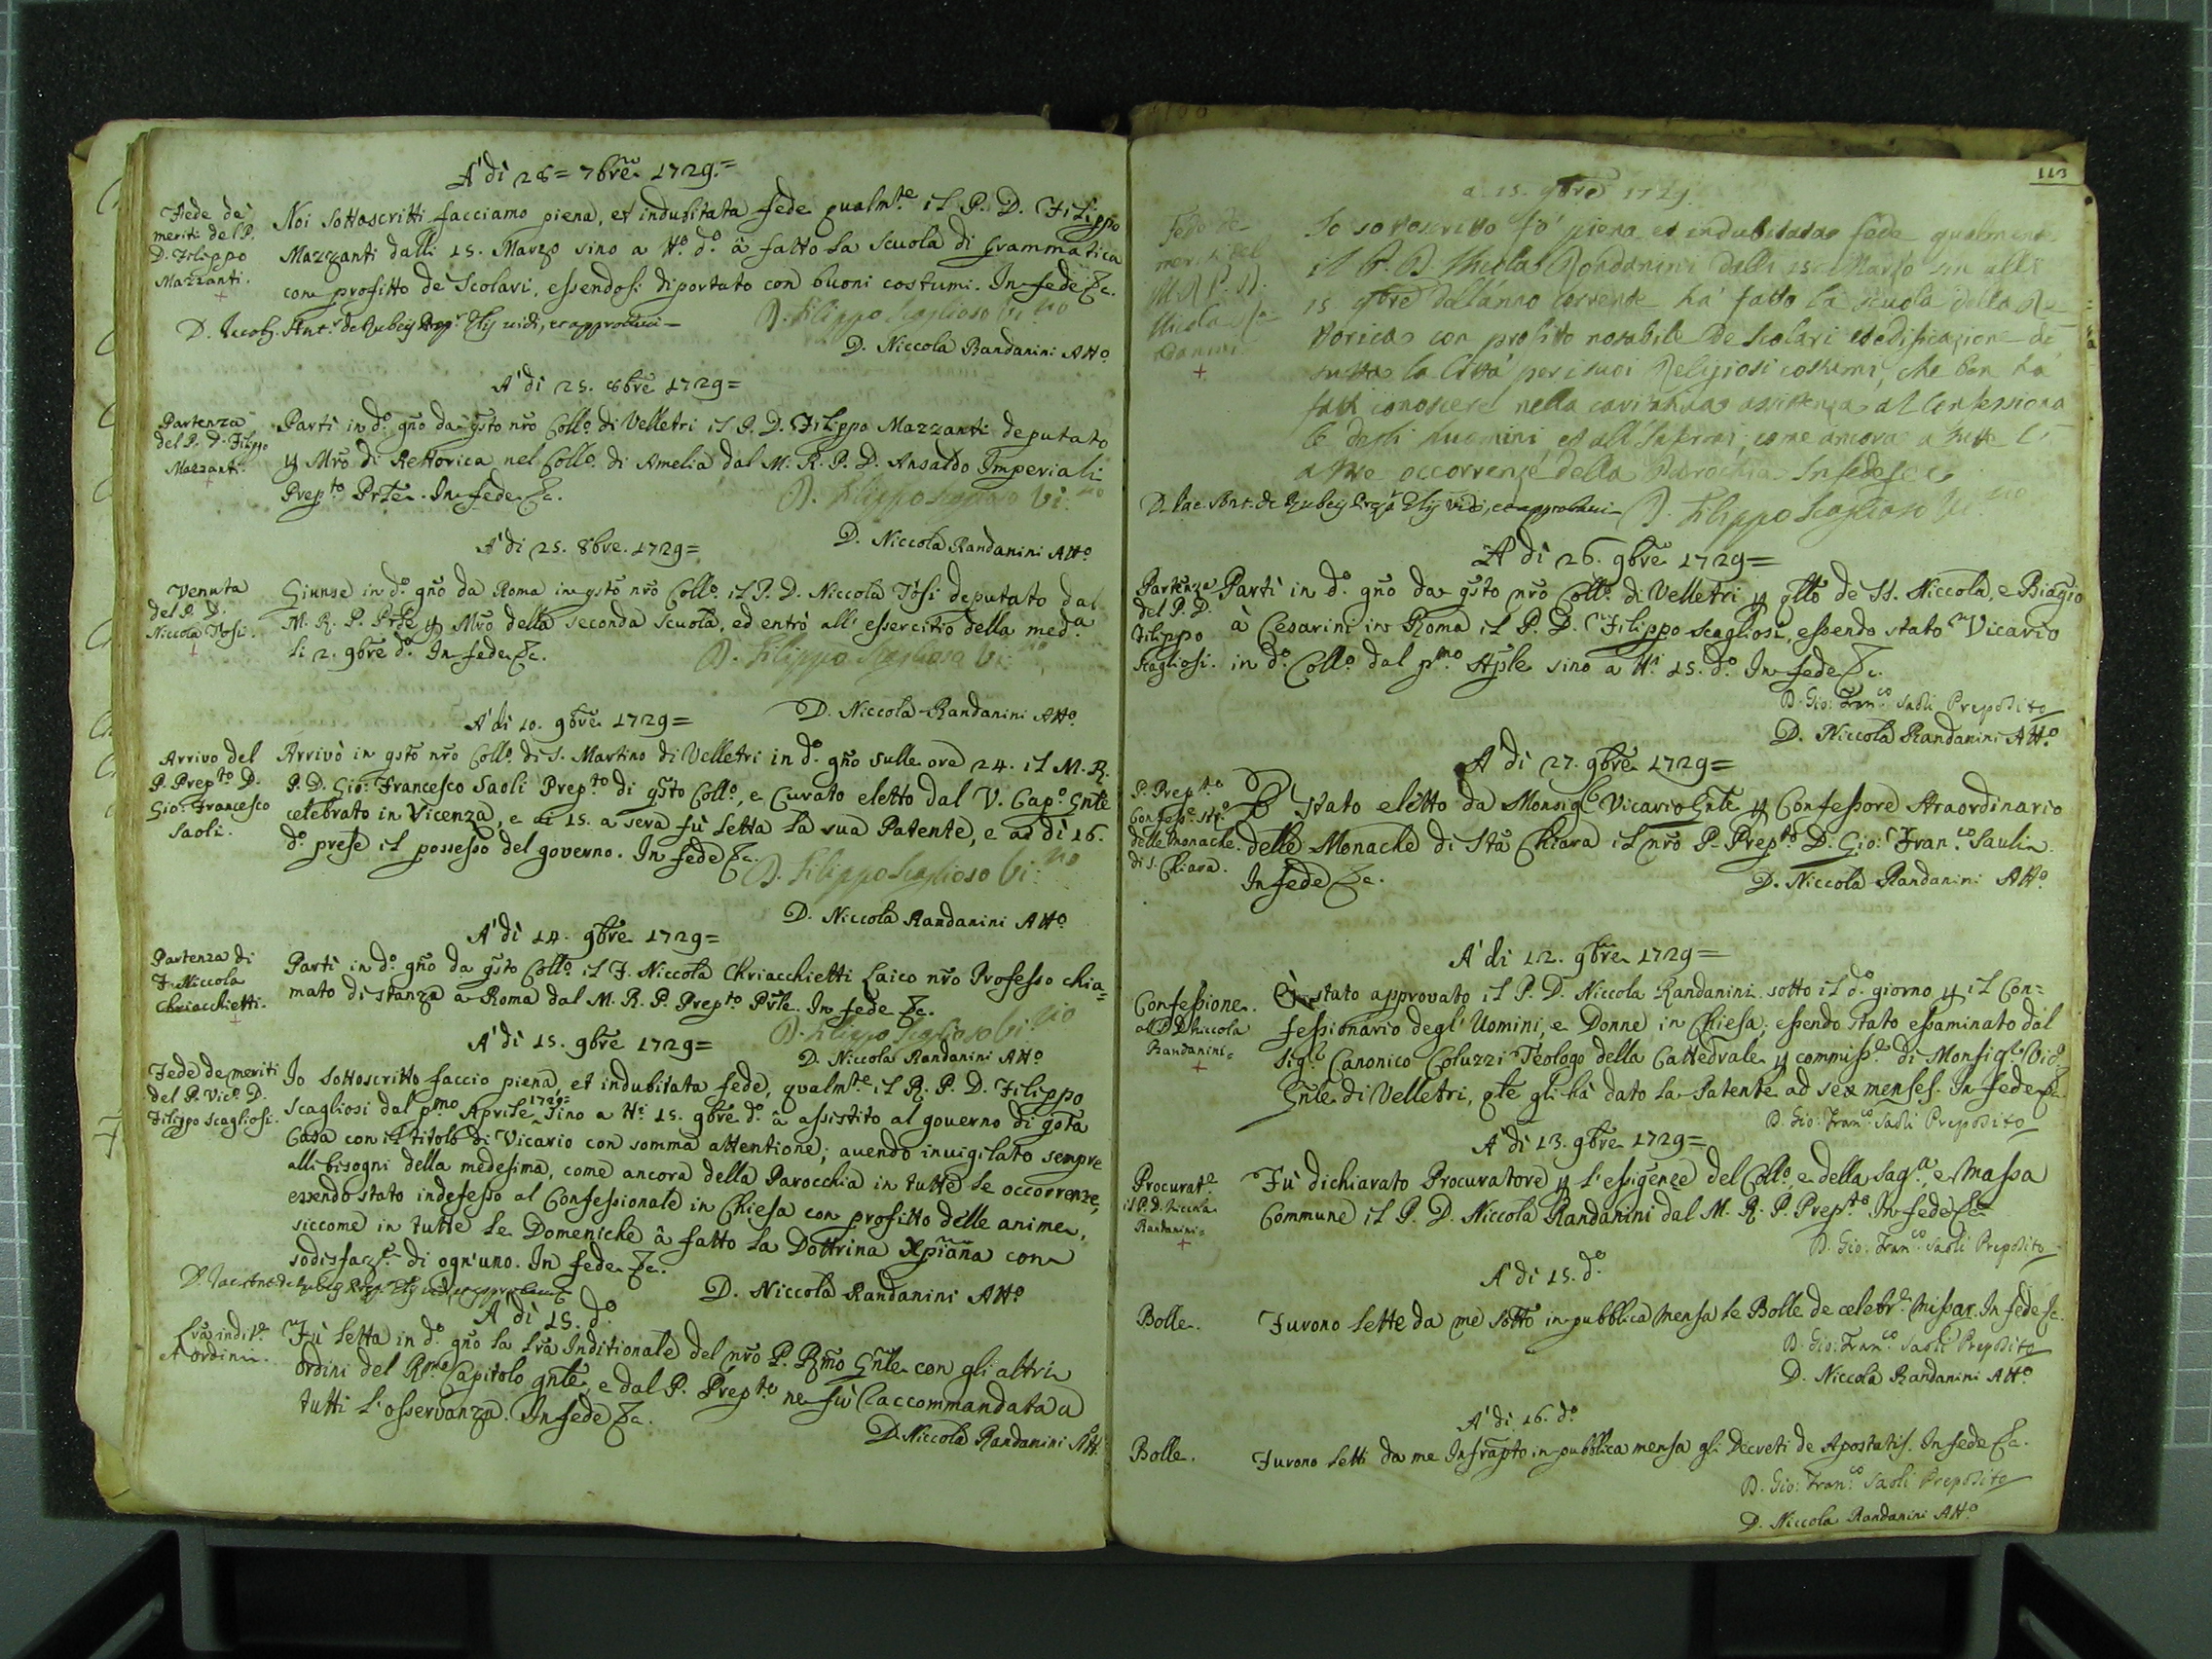 A' di 28= 7bre 1729.=
Fede de'
meriti del P.
D. Filippo
Mazzanti.
Noi sottoscritti facciamo piena, et indubitata fede qualmte il P. D. Filippo
Mazzanti dalli 15. Marzo sino a tto do à fatto la scuola di Grammatica
con profitto de Scolari, essendosi diportato con buoni costumi. In fede &c.
D. Filippo Scaglioso Vi:rio
D. Jacob. Ant. de Rubeis Prep. Glis vidi, et approbavi
D. Niccola Randanini Atto
A' di 25. 8bre 1729=
Partenza
del P. D. Filippo
Mazzanti.
Partì in do gno da gsto nro Collo di Velletri il P. D. Filippo Mazzanti deputato
p Mro di Rettorica nel Collo di Amelia dal M. R. P. D. Ansaldo Imperiali
Prepto Prle. In fede &c.
D. Filippo Scaglioso Vi:rio
D. Niccola Randanini Atto
A' di 25. 8bre. 1729=
Venuta
del P. D.
Niccola Tosi.
Giunse in do gno da Roma in gsto nro Collo il P. D. Niccola Tosi deputato dal
M. R. P. Prle p Mro della seconda scuola, ed entrò all' essercitio della meda
li 2. 9bre do In fede &c.
D. Filippo Scaglioso Vi:rio
D. Niccola Randanini Atto
A' di 10. 9bre 1729=
Arrivo del
P. Prepto D.
Gio: Francesco
Saoli.
Arrivò in gsto nro Collo di S. Martino di Velletri in do gno sulle ore 24. il M. R.
P. D. Gio: Francesco Saoli Prepto di gsto Collo, e Curato eletto dal V. Capo Gnle
celebrato in Vicenza, e li 15. a sera fù letta la sua Patente, e ad di 16.
do prese il possesso del governo. In fede &c.
D. Filippo Scaglioso Vi:rio
D. Niccola Randanini Atto
A' di 14. 9bre 1729=
Partenza di
F. Niccola
Chriacchietti.
Partì in do gno da gsto Collo il F. Niccola Chriacchietti Laico nro Professo chia=
mato di stanza a Roma dal M. R. P. Prepto Prle. In fede &c.
D. Filippo Scaglioso Vi:rio
D. Niccola Randanini Atto
A' di 15. 9bre 1729=
Fede de meriti
del P. Vico D.
Filippo Scagliosi.
Io sottoscritto faccio piena, et indubitata fede, qualmte il R. P. D. Filippo
Scagliosi dal pmo Aprile 1729= sino a tti 15. 9bre do à assistito al governo di gsta
Casa con il titolo di Vicario con somma attentione; avendo invigilato sempre
alli bisogni della medesima, come ancora della Parocchia in tutte le occorrenze,
essendo stato indefesso al Confessionale in Chiesa con profitto delle anime,
siccome in tutte le Domeniche à fatto la Dottrina Xpiana con
sodisfazne di ogn'uno. In fede &c.
D. Jac. Ant. de Rubeis Prep. Glis vidi, et approbavi
D. Niccola Randanini Atto
A' di 15. do
Lra indite
et ordini.
Fù letta in do gno la lra Inditionale del nro P. Rmo Gnle con gli altri
ordini del Rmo Capitolo gnle, e dal P. Prepto ne fù raccommandata a
tutti l'osservanza. In fede &c.
D. Niccola Randanini Att.
113
a. 15. 9bre 1729.
Fede de
meriti del
M. R. P. D.
Nicola Ra=
ndanini
Io sottoscritto fò piena et indubitata fede qualmente
il P. D. Nicola Rondanini dalli 15 Marzo sin alli
15 9bre dell'anno corrente ha' fatto la scuola della Re=
ttorica con profitto notabile de Scolari et edificazione di
tutta la Città per i suoi Religiosi costumi, che ben ha
fatti conoscere nella caritativa assistenza al Confessiona
le degli huomini et all'Infermi, come ancora a tutte l'
altre occorrenze della Parochia. In fede &c
D. Jac. Ant. de Rubeis Prep. Glis vidi, et approbavi
D. Filippo Scaglioso Vi:rio
A' di 26. 9bre 1729=
Partenza
del P. D.
Filippo
Scagliosi.
Partì in do gno da gsto nro Collo di Velletri p qllo de SS. Niccola, e Biagio
à Cesarini in Roma il P. D. Filippo Scagliosi, essendo stato Vicario
in do Collo dal pmo Aple sino a tti 15. do In fede &c.
D. Gio: Franco Saoli Preposito
D. Niccola Randanini Atto
A' di 27. 9bre 1729=
P. Prepto
Confess. stro
delle Monache
di S. Chiara.
È stato eletto da Monsigr Vicario Gnle p Confessore straordinario
delle Monache di Sta Chiara il nro P. Prepto D. Gio: Franco Sauli.
In fede &c.
D. Niccola Randanini Atto
A' di 12. 9bre 1729=
Confessione
al P. D. Niccola
Randanini=
È stato approvato il P. D. Niccola Randanini sotto il do giorno p il Con=
fessionario degl' Uomini, e Donne in Chiesa, essendo stato essaminato dal
Sigr Canonico Coluzzi Teologo della Cattedrale p commisse di Monsigr Vico
Gnle di Velletri, qle gli hà dato la Patente ad sex menses. In fede &c.
D. Gio: Franco Saoli Preposito
A' di 13. 9bre 1729=
Procurate
il P. D. Niccola
Randanini=
Fù dichiarato Procuratore p l'essigenze del Collo, e della Sagta, e Massa
Commune il P. D. Niccola Randanini dal M. R. P. Prepto. In fede &c
D. Gio: Franco Saoli Preposito
A' di 15. do
Bolle.
Furono lette da me sotto in pubblica mensa le Bolle de celebre Missar. In fede &c.
D. Gio: Franco Saoli Preposito
D. Niccola Randanini Atto
A' di 16. do
Bolle.
Furono letti da me Infrapto in pubblica mensa gli Decreti de Apostatis. In fede &c.
D. Gio: Franco Saoli Preposito
D. Niccola Randanini Atto